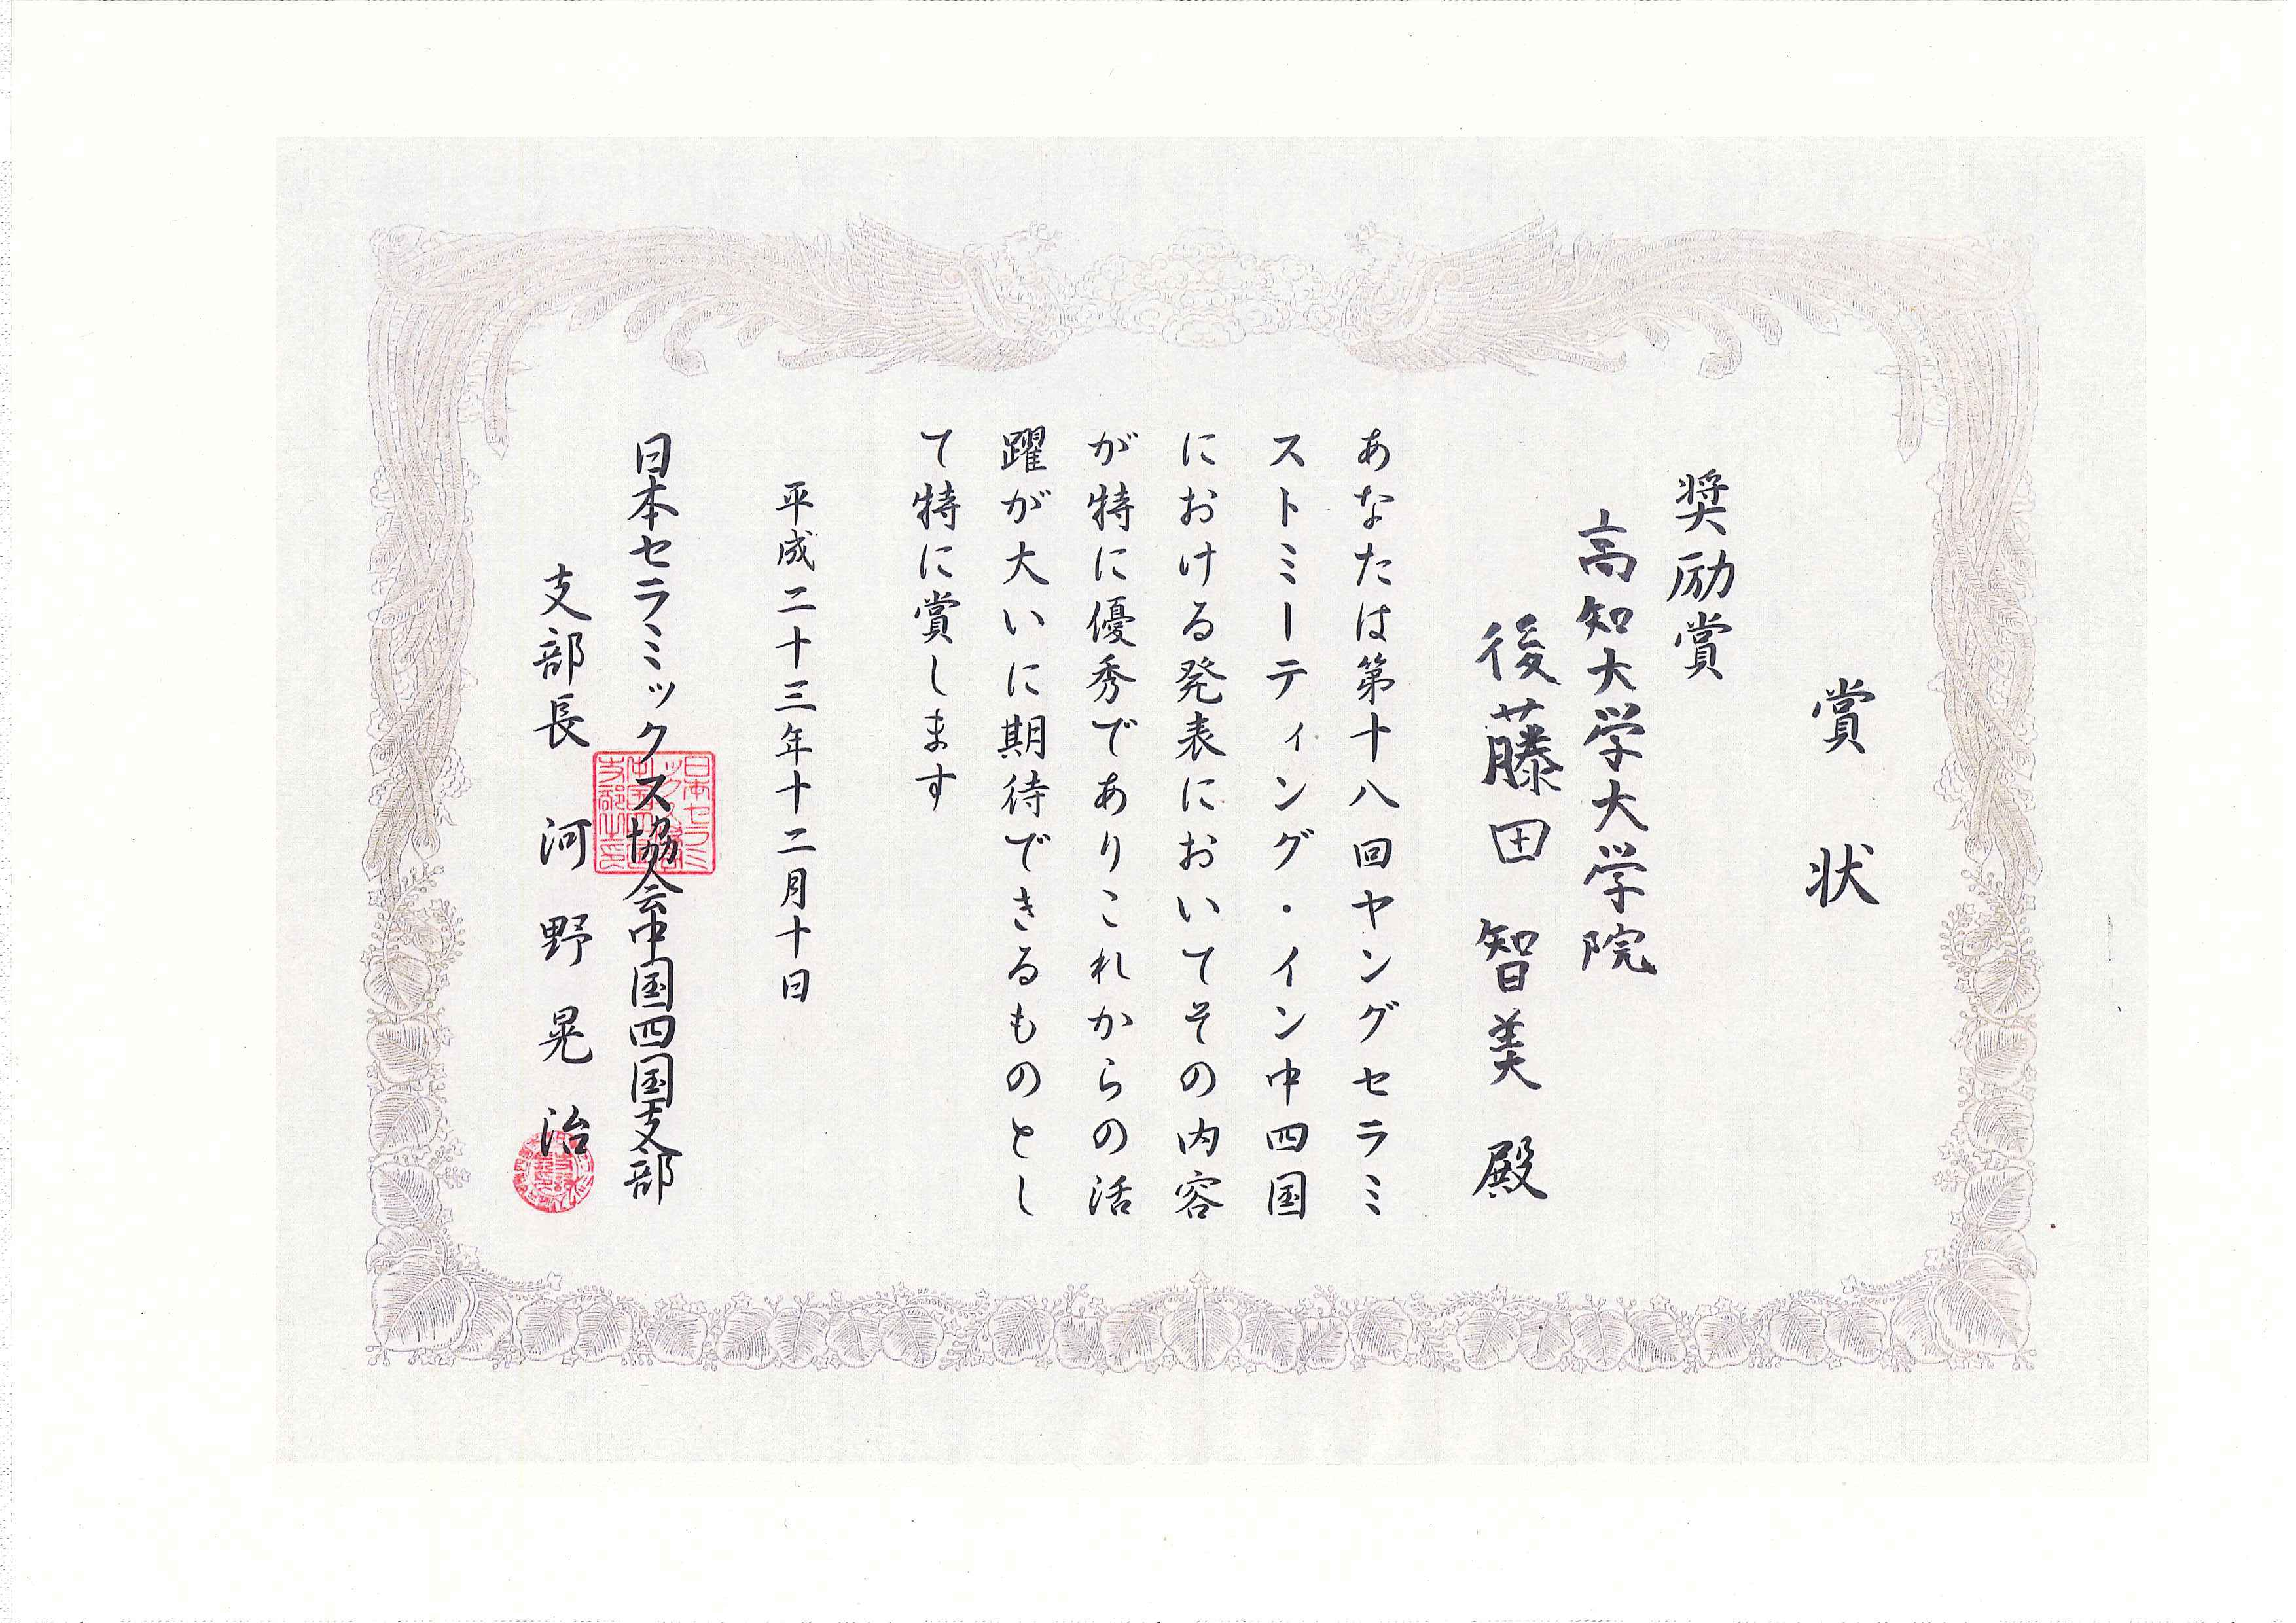 賞状
奨励賞
高知大学大学院
後藤田 智美 殿
あなたは第十八回ヤングセラミ
ストミーティング・イン中四国
における発表においてその内容
が特に優秀でありこれからの活
躍が大いに期待できるものとし
て特に賞します
平成二十三年十二月十日
日本セラミックス協会中国四国支部
支部長 河野晃治